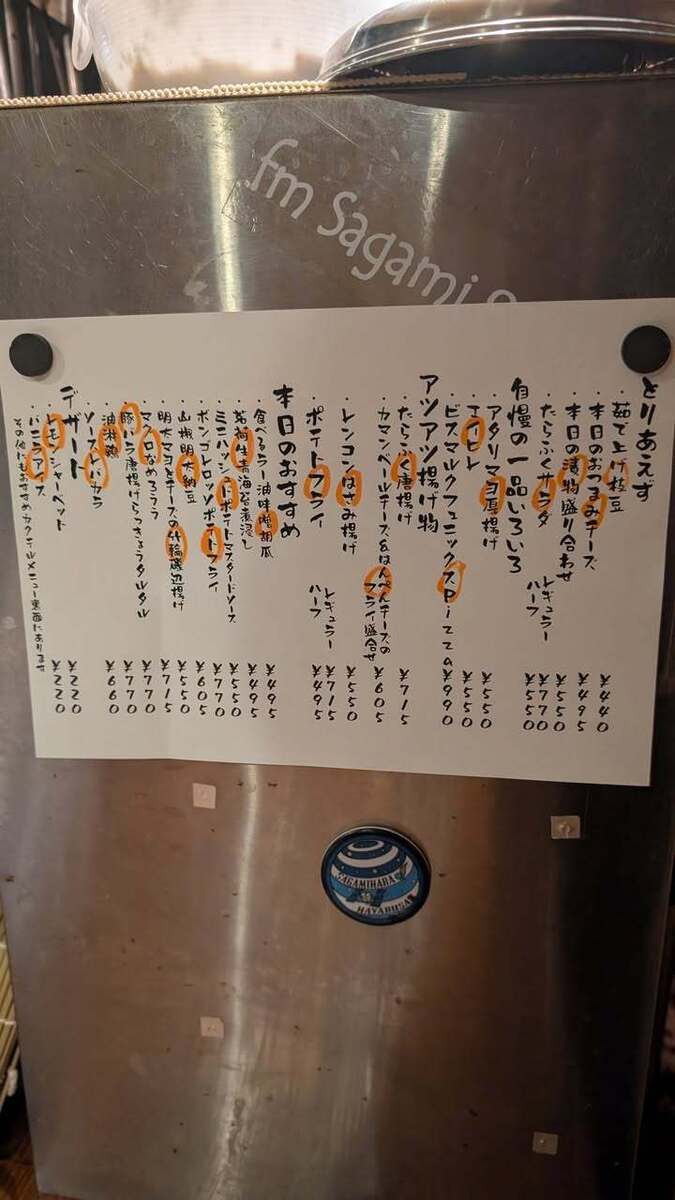 fm Sagami
とりあえず
・茹で上げ枝豆 ¥440
・本日のおつまみチーズ ¥495
・本日の漬物盛り合わせ ¥550
・たらふくサラダ レギュラー ¥770
ハーフ ¥550
自慢の一品いろいろ
・アタリマヨ厚揚げ ¥550
・エイヒレ ¥550
・ビスマルクフェニックスPizza ¥990
アツアツ揚げ物
・たらふく唐揚げ ¥715
・カマンベールチーズ&はんぺんチーズの
フライ盛合せ ¥605
・レンコンはさみ揚げ ¥550
・ポテトフライ レギュラー ¥715
ハーフ ¥495
本日のおすすめ
・食べるラー油味噌胡瓜 ¥495
・茗荷生青海苔煮浸し ¥495
・ミニハッシュドポテトマスタードソース ¥550
・ボンゴレロッソポテトフライ ¥770
・山椒明太納豆 ¥605
・明太マヨネチーズの竹輪磯辺揚げ ¥550
・マグロなめろう ¥715
・豚バラ唐揚げらっきょうタルタル ¥770
・油淋鶏 ¥770
・ソーストンカラ ¥660
デザート
・レモンシャーベット ¥220
・バニラアイス ¥220
その他にもおすすめカクテルメニュー裏面にあります
SAGAMIHARA
HAYABUSA